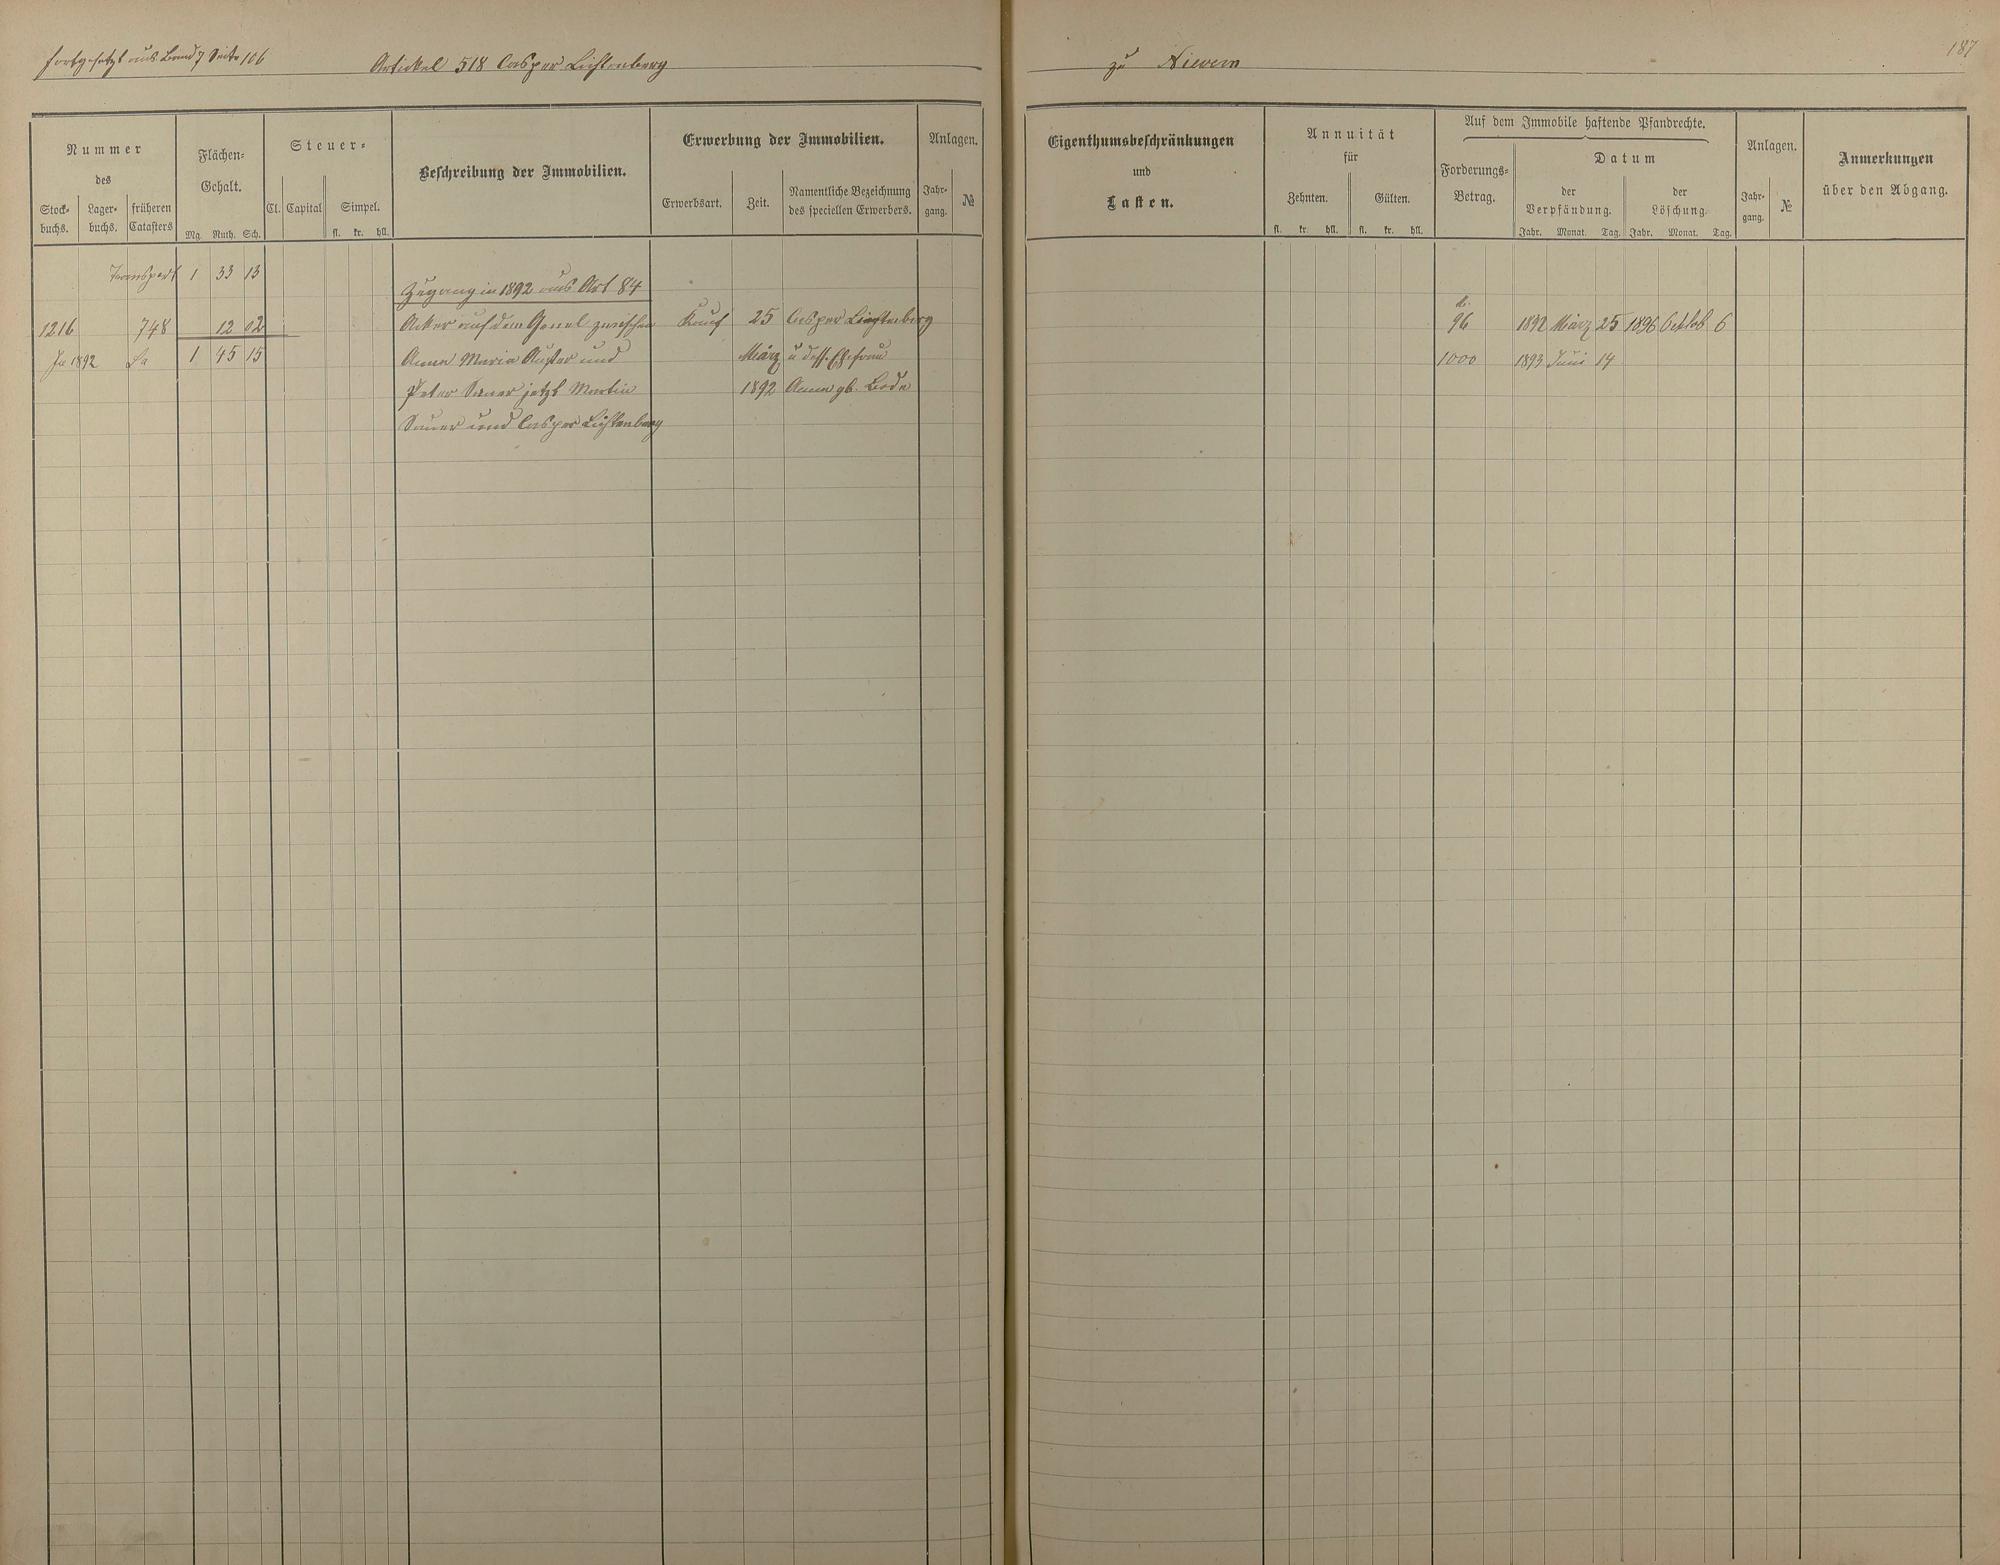 fortgesetzt aus Band 7 Seite 106
Artickel 518 Casper Lichtenberg
zu Nievern
187
Nummer
des
Stock-
buchs.
Lager-
buchs.
früheren
Catasters
Flächen-
Gehalt.
Mg. Ruth. Sch.
Steuer-
Cl. Capital Simpel.
fl. kr. hll.
Beschreibung der Immobilien.
Erwerbung der Immobilien.
Erwerbsart. Zeit.
Namentliche Bezeichnung
des speciellen Erwerbers.
Anlagen.
Jahr-
gang.
№
Eigenthumsbeschränkungen
und
Lasten.
Annuität
für
Zehnten. Gülten.
fl. kr. hll. fl. kr. hll.
Auf dem Immobile haftende Pfandrechte.
Forderungs-
Betrag.
Datum
der
Verpfändung.
der
Löschung.
Jahr. Monat. Tag. Jahr. Monat. Tag.
Anlagen.
Jahr-
gang.
№
Anmerkungen
über den Abgang.
Transport 1 33 13
Zugang in 1892 aus Art 84
1216 748 12 02 Acker auf dem zwischen Kauf 25 Casper Lichtenberg 96 1892 März 25 1896 Octob 6
In 1892 Sa 1 45 15 Anna Maria und März u dess. Ehefrau 1000 1893 Juni 14
Peter Sauer jetzt Martin 1892 Anna gb. Bode
Sauer und Casper Lichtenberg